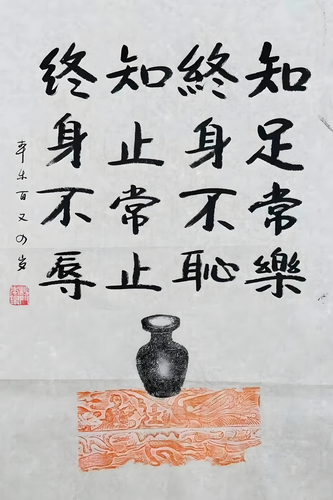 知足常樂
終身不恥
知止常止
终身不辱
辛未百又四岁